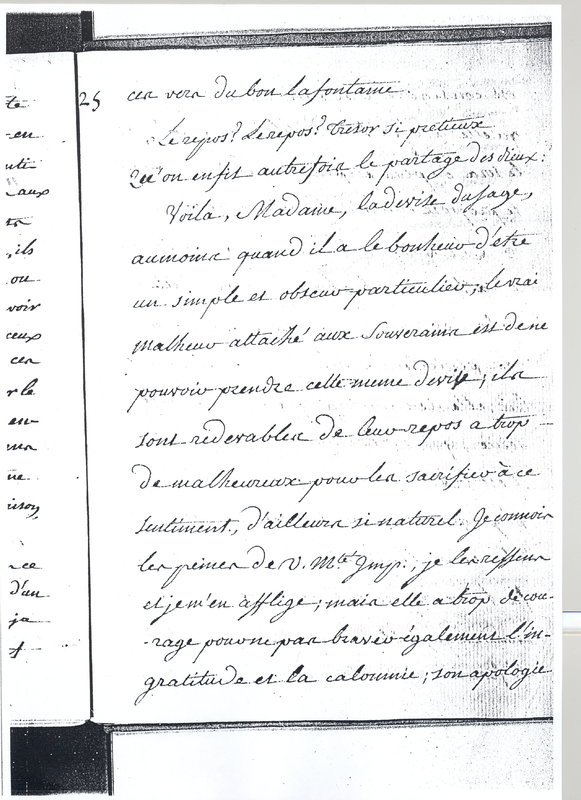 te
-en
nti
-aux
ta
, ils
ou
voir
ceux
ces
r le
en-
ne
ce
d'un
ja
25
ces vers du bon lafontaine.
Le repos? Le repos? Tresor si pretieux
Qu'on enfit autrefois le partage des dieux:
Voila, Madame, la devise du sage,
aumoins quand il a le bonheur d'être
un simple et obscur particulier; le vrai
malheur attaché aux Souverains est de ne
pouvoir prendre cette meme devise; ils
sont redevables de leur repos a trop
de malheureux pour les sacrifier à ce
sentiment, d'ailleurs si naturel. Je connois
les peines de V. Mté Imp., je les ressens
et je m'en afflige; mais elle a trop de cou-
-rage pour ne pas braver également l'in-
gratitude et la calomnie; son apologie